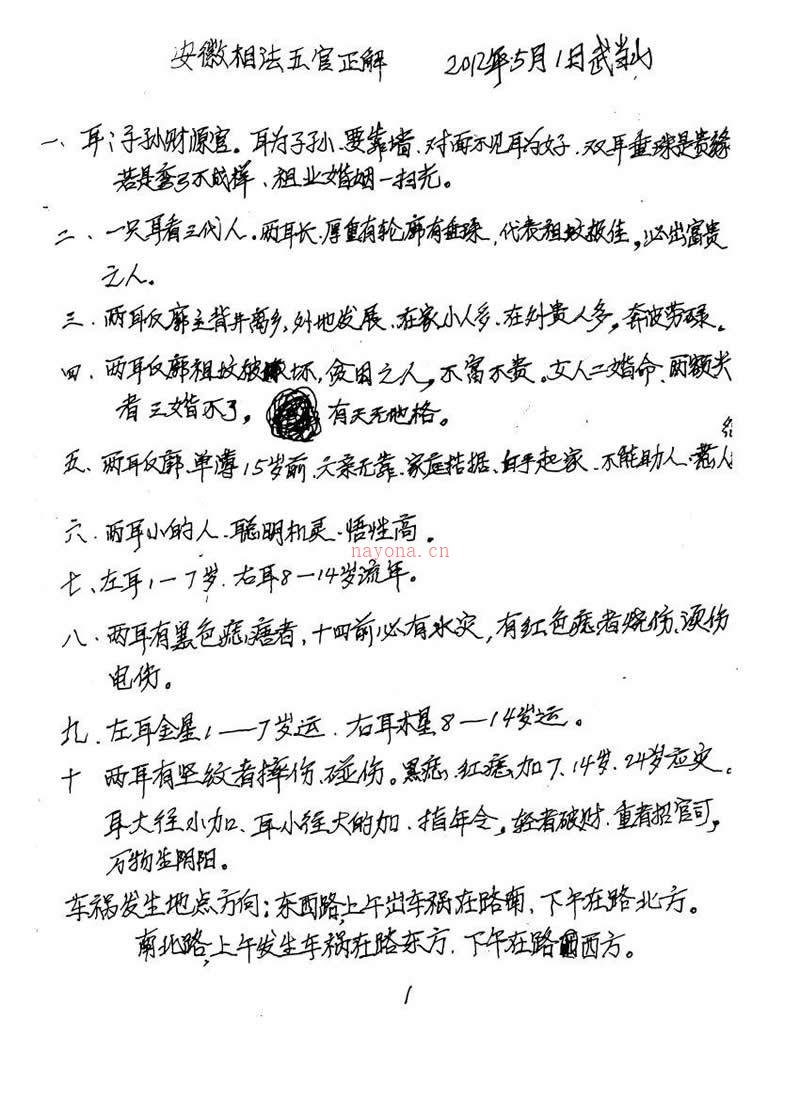 安徽相法五官正解 2012年5月1日武当山
一、耳;子孙财源官。耳为子孙、要靠墙、对面不见耳为好、双耳垂珠是贵缘
若是弯弓不成样、祖业婚姻一扫光。
二、一只耳看三代人。两耳长、厚重有轮廓有垂珠，代表祖坟极佳，必出富贵
之人。
三、两耳反廓主背井离乡，外地发展、在家小人多、在外贵人多，奔波劳碌。
四、两耳反廓祖坟破坏，贫困之人，不富不贵。女人二婚命、两额尖
者三婚不了， 有天无地格。
五、两耳反廓、单薄15岁前、六亲无靠、家庭拮据、白手起家、不能助人
六、两耳小的人、聪明机灵、悟性高。
nayona.cn
七、左耳1—7岁、右耳8—14岁流年。
八、两耳有黑色痣、痦者，十四前必有水灾，有红色痣者烧伤、烫伤
电伤。
九、左耳金星1—7岁运、右耳木星8—14岁运。
十 两耳有竖纹者摔伤、碰伤。黑痣、红痣、加7、14岁、24岁应灾。
耳大往小加、耳小往大的加、指年令，轻者破财、重者招官司，
万物生阴阳。
车祸发生地点方向;东西路，上午出车祸在路南、下午在路北方。
南北路，上午发生车祸在路东方、下午在路西方。
1